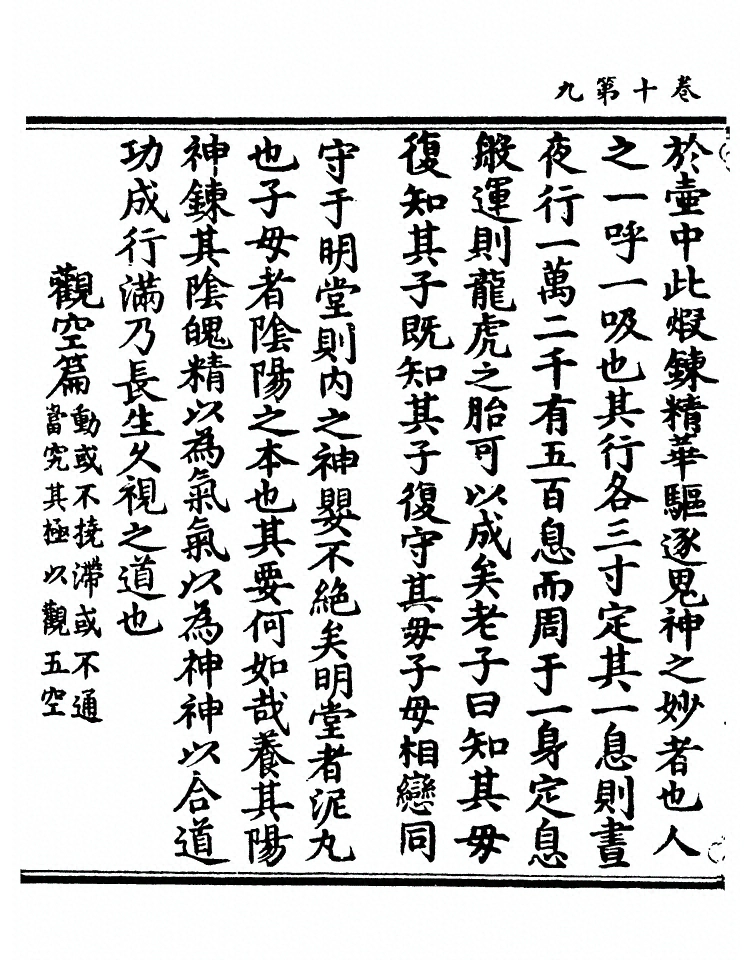 卷十第九
於壷中此煆鍊精華驅逐鬼神之妙者也人
之一呼一吸也其行各三寸定其一息則晝
夜行一萬二千有五百息而周于一身定息
般運則龍虎之胎可以成矣老子曰知其母
復知其子既知其子復守其母子母相戀同
守于明堂則内之神嬰不絶矣明堂者泥丸
也子母者陰陽之本也其要何如哉養其陽
神鍊其陰魄精以為氣氣以為神神以合道
功成行滿乃長生久視之道也
觀空篇
動或不撓滯或不通
當究其極以觀五空